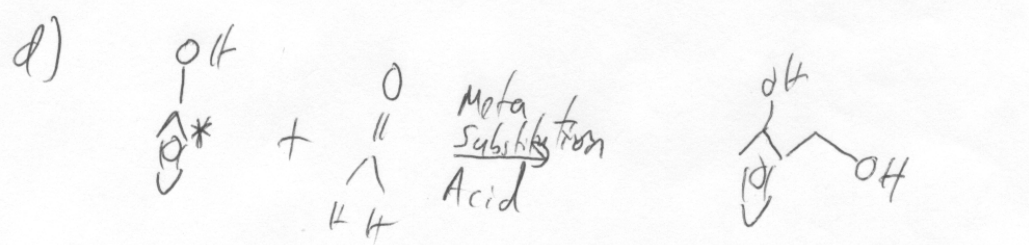 d)
OH
O
Meta
* + || Substitution
H H Acid
OH
OH